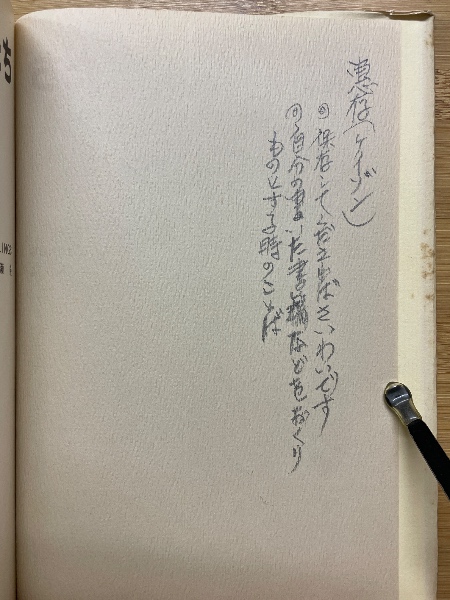 恵存(ケイゾン)
◎保存して下さればさいわいです
◎自分の書いた書籍などをおくり
ものとする時のことば